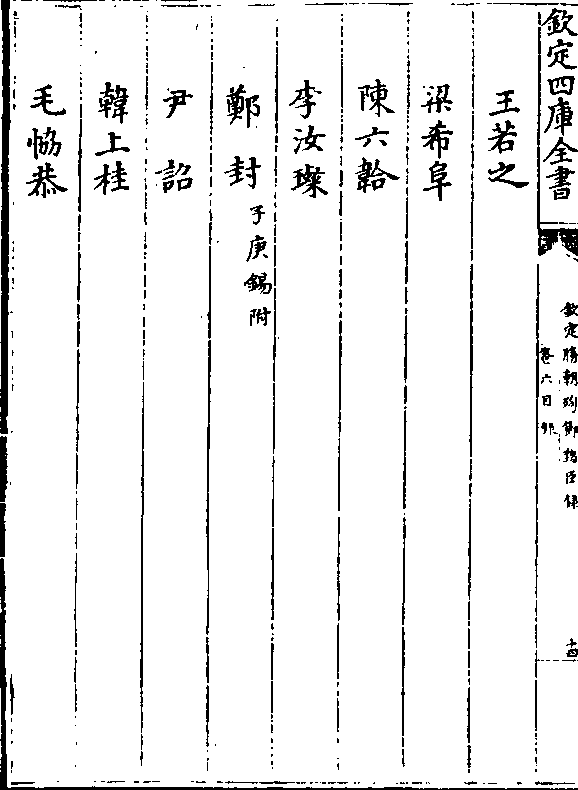 欽定四庫全書
欽定勝朝殉節諸臣録
卷六目録
十四
王若之
梁希阜
陳六韐
李汝璨
鄭封子庚錫附
尹詔
韓上桂
毛恊恭